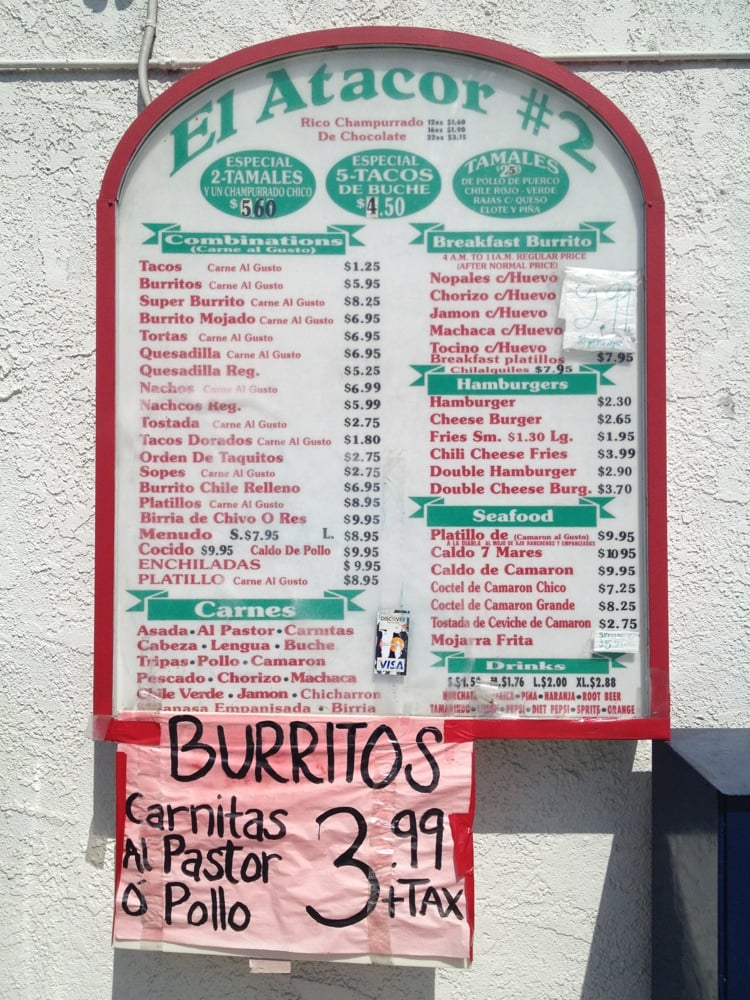 El Atacor #2
Rico Champurrado 12oz $1.60
De Chocolate 16oz $1.90
32oz $3.15
ESPECIAL
2-TAMALES
Y UN CHAMPURRADO CHICO
$5.60
ESPECIAL
5-TACOS
DE BUCHE
$4.50
TAMALES
DE POLLO DE PUERCO
CHILE ROJO - VERDE
RAJAS C/ QUESO
ELOTE Y PIÑA
Combinations
(Carne al Gusto)
Tacos Carne Al Gusto $1.25
Burritos Carne Al Gusto $5.95
Super Burrito Carne Al Gusto $8.25
Burrito Mojado Carne Al Gusto $6.95
Tortas Carne Al Gusto $6.95
Quesadilla Carne Al Gusto $6.95
Quesadilla Reg. $5.25
Nachos Carne Al Gusto $6.99
Nachcos Reg. $5.99
Tostada Carne Al Gusto $2.75
Tacos Dorados Carne Al Gusto $1.80
Orden De Taquitos $2.75
Sopes Carne Al Gusto $2.75
Burrito Chile Relleno $6.95
Platillos Carne Al Gusto $8.95
Birria de Chivo O Res $9.95
Menudo S.$7.95 L. $8.95
Cocido $9.95 Caldo De Pollo $9.95
ENCHILADAS $9.95
PLATILLO Carne Al Gusto $8.95
Carnes
Asada • Al Pastor • Carnitas
Cabeza • Lengua • Buche
Tripas • Pollo • Camaron
Pescado • Chorizo • Machaca
Chile Verde • Jamon • Chicharron
Empanisada • Birria
Breakfast Burrito
4 A.M. TO 11A.M. REGULAR PRICE
(AFTER NORMAL PRICE)
Nopales c/Huevo
Chorizo c/Huevo
Jamon c/Huevo
Machaca c/Huevo
Tocino c/Huevo
2.99
Breakfast platillos $7.95
Chilalquiles $7.95
Hamburgers
Hamburger $2.30
Cheese Burger $2.65
Fries Sm. $1.30 Lg. $1.95
Chili Cheese Fries $3.99
Double Hamburger $2.90
Double Cheese Burg. $3.70
Seafood
Platillo de (Camaron al Gusto) $9.95
A LA DIABLA AL MOJO DE AJO RANCHEROS Y EMPANIZADOS
Caldo 7 Mares $10 95
Caldo de Camaron $9.95
Coctel de Camaron Chico $7.25
Coctel de Camaron Grande $8.25
Tostada de Ceviche de Camaron $2.75
Mojarra Frita
Drinks
S.$1.50 M.$1.76 L.$2.00 XL.$2.88
HORCHATA • JAMAICA • PIÑA • NARANJA • ROOT BEER
TAMARINDO • LIMON • PEPSI • DIET PEPSI • SPRITE • ORANGE
DISCOVER
VISA
BURRITOS
Carnitas
Al Pastor
O Pollo
3.99
+TAX